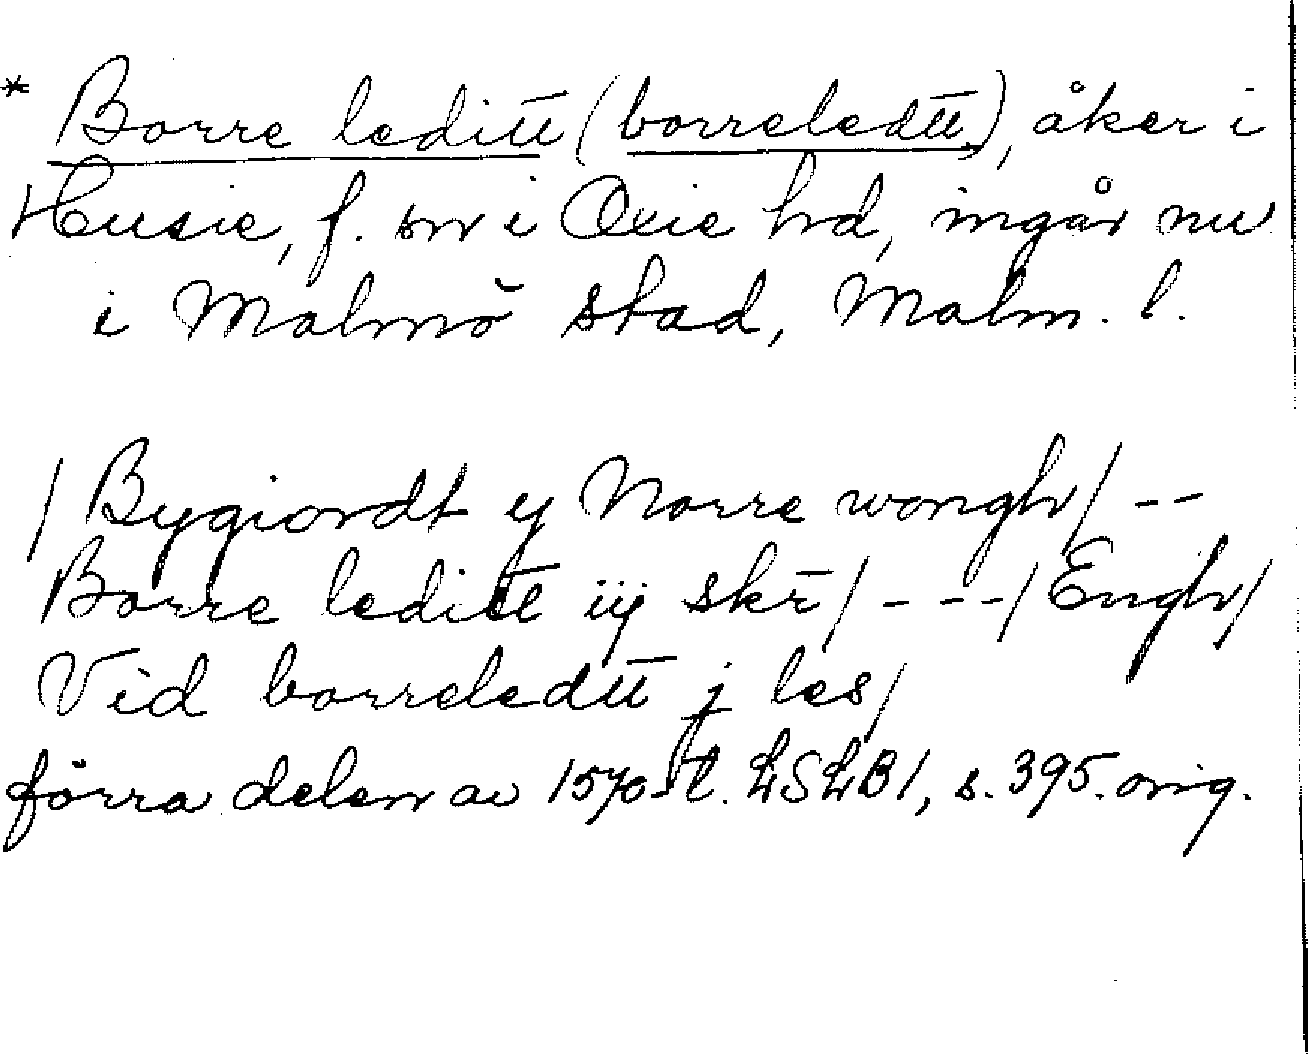 * Borre leditt (borreledtt), åker i
Husie, f. sn i Oxie hd, ingår nu
i Malmö stad, Malm. l.
/ Bygiordt y Norre wongh / --
Borre leditt iij skr / - -- / Engh /
Vid borreledtt j les /
förra delen av 1570-t. LSLB1, s. 395. orig.